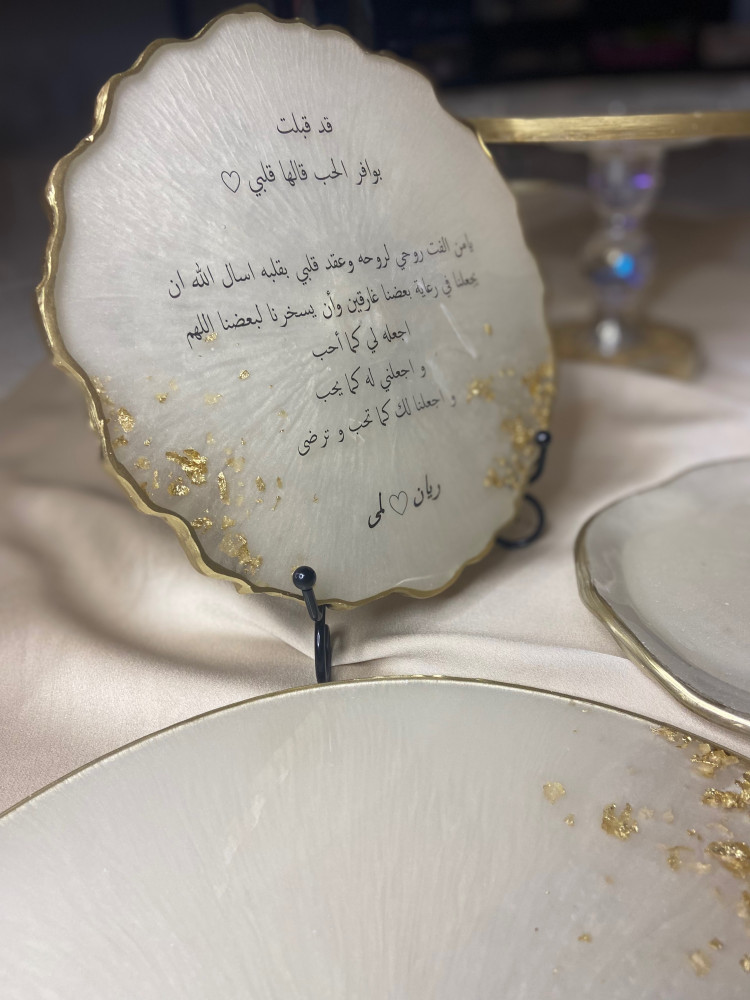 قد قبلت
بوافر الحب قالها قلبي ♡
يامن الفت روحي لروحه وعقد قلبي بقلبه اسال الله ان
يجعلنا في رعاية بعضنا غارقين وأن يسخرنا لبعضنا اللهم
اجعله لي كما أحب
و اجعلني له كما يحب
و اجعلنا لك كما تحب و ترضى
ريان ♡ لمى